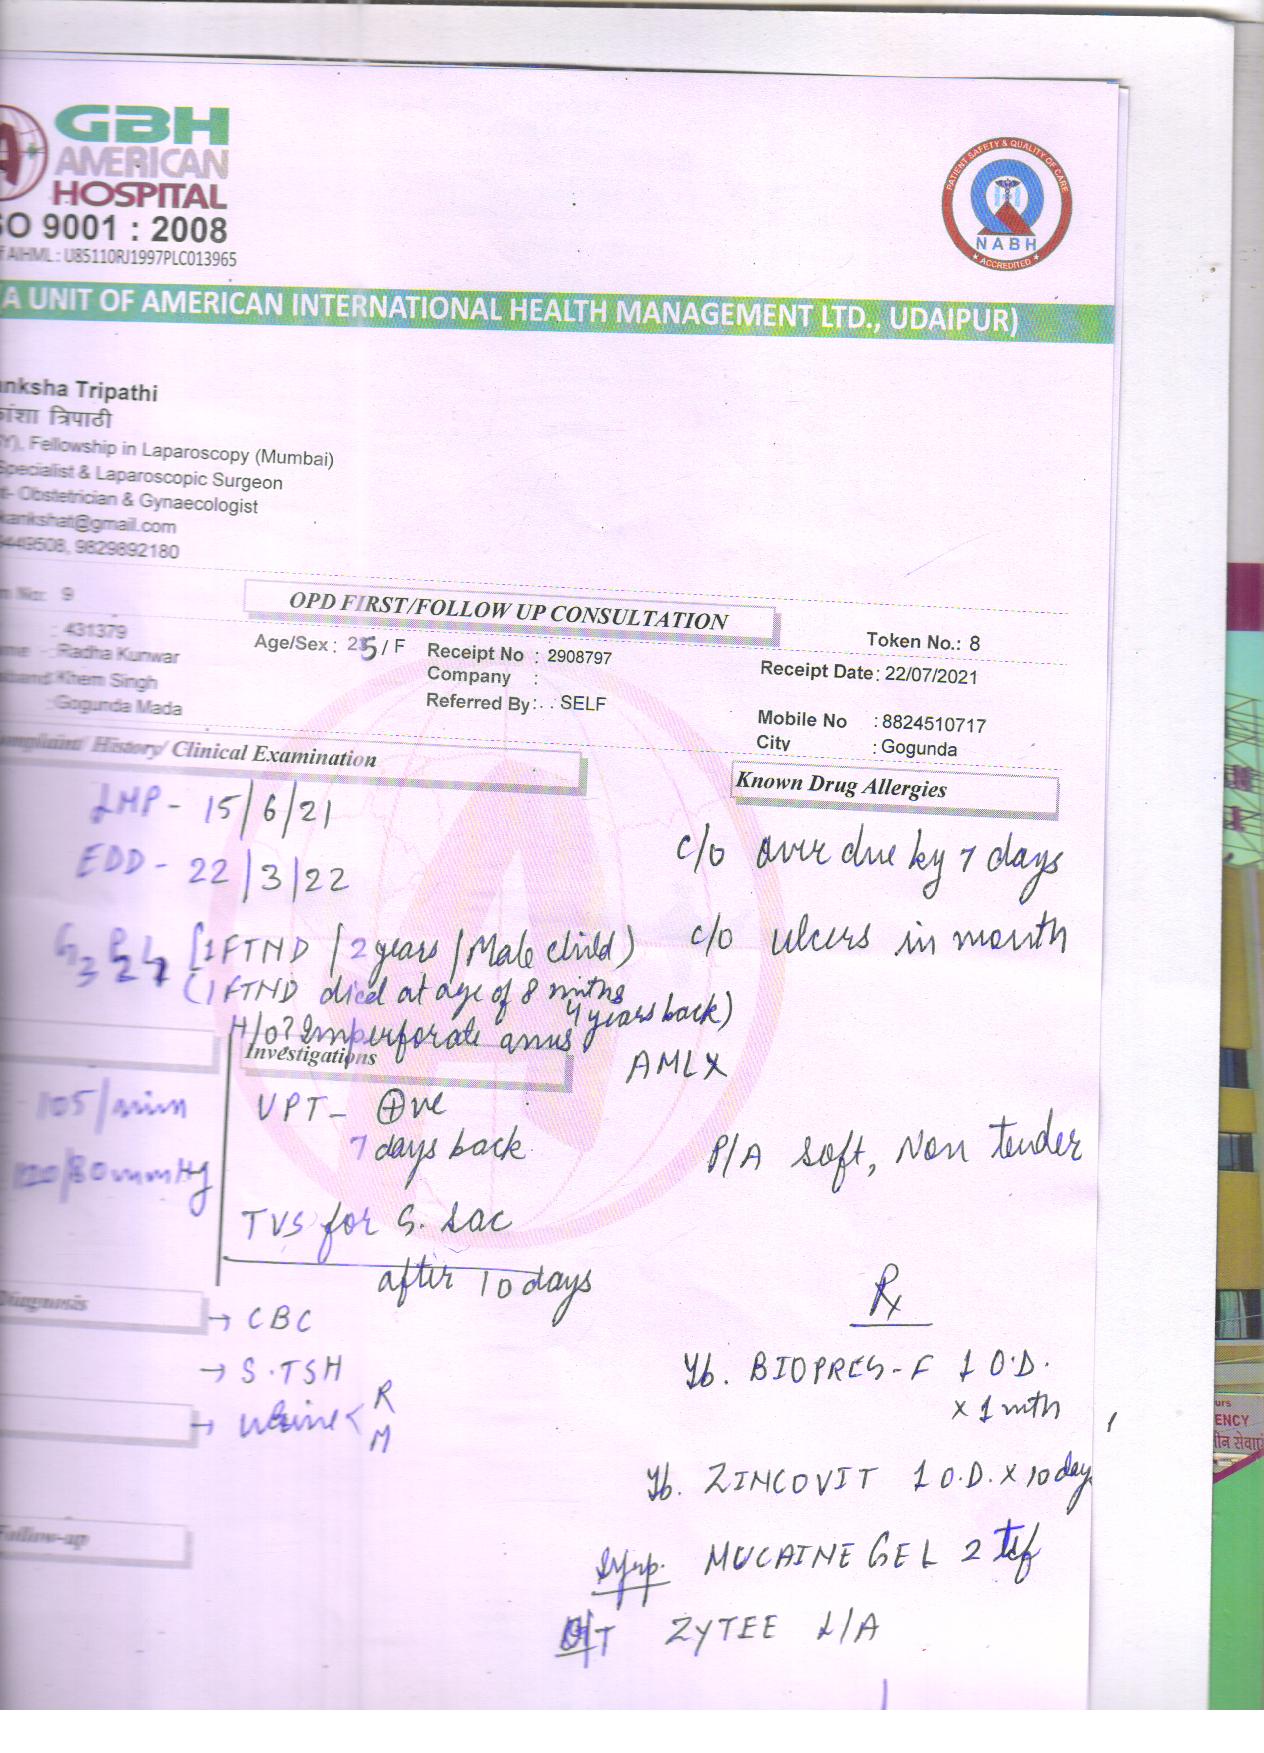 GBH
AMERICAN
HOSPITAL
SO 9001 : 2008
f AIHML : U85110RJ1997PLC013965
PATIENT SAFETY & QUALITY OF CARE
NABH
ACCREDITED
(A UNIT OF AMERICAN INTERNATIONAL HEALTH MANAGEMENT LTD., UDAIPUR)
nksha Tripathi
कांशा त्रिपाठी
Y), Fellowship in Laparoscopy (Mumbai)
Specialist & Laparoscopic Surgeon
t- Obstetrician & Gynaecologist
kankshat@gmail.com
449508, 9829892180
m No: 9
OPD FIRST/FOLLOW UP CONSULTATION
Token No.: 8
: 431379
Age/Sex : 25 / F
Receipt No : 2908797
Receipt Date : 22/07/2021
me : Radha Kunwar
Company :
band: Khem Singh
Referred By : . . SELF
Mobile No : 8824510717
: Gogunda Mada
City : Gogunda
omplaint/ History/ Clinical Examination
Known Drug Allergies
LMP - 15/6/21
EDD - 22/3/22
c/o over due by 7 days
G3 P2 L1 [1 FTND / 2 years / Male child)
c/o ulcers in mouth
(1 FTND died at age of 8 mnths
4 years back)
H/o ? Imperforate anus
Investigations
AMLX
105/min
VPT - ⊕ve
7 days back
P/A soft, Non tender
120/80 mmHg
TVS for G. sac
after 10 days
Diagnosis
→ CBC
→ S.TSH
→ urine < R
M
Follow-up
Rx
Tb. BIOPRES-F 1 O.D.
x 1 mth
Tb. ZINCOVIT 1 O.D. x 10 day
Syrp. MUCAINE GEL 2 tsf
ZYTEE L/A
urs
ENCY